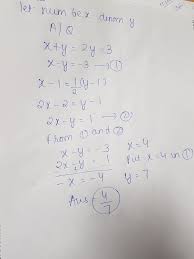 let num be x denom y
A/Q
x+y = 2y = 3
x-y = -3 — ①
x-1 = 1/2(y-1)
2x-2 = y-1
2x-y = 1 — ②
From ① and ②
x-y = -3
2x-y = 1
-x = -4
x=4
Put x=4 in ①
y=7
Ans - 4/7